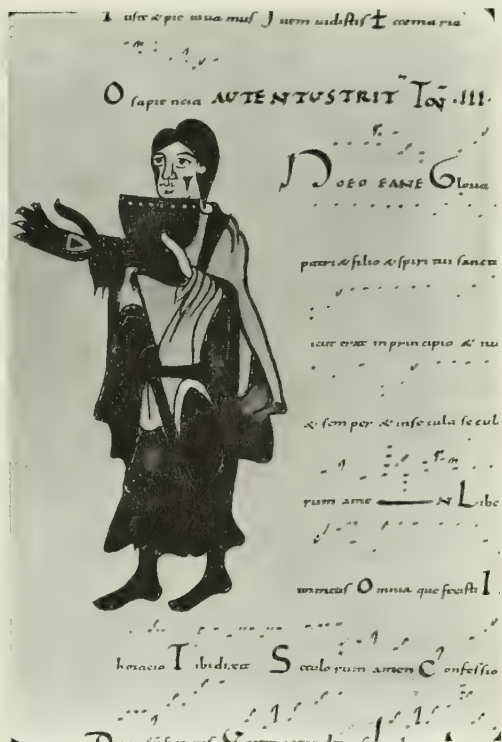 uste & pie uiuamus Juem uidistis ccemaria
O sapiencia AUTENTUS TRIT Ton .III.
NOEO EANE Gloria
patri & filio & spiri tui sancto
icut erat in principio & nu
& sem per & inse cula se cul
rum ame N Libe
inimicus Omnia que fecisti I
horacio Tibi dixit Seculo rum amen Confessio